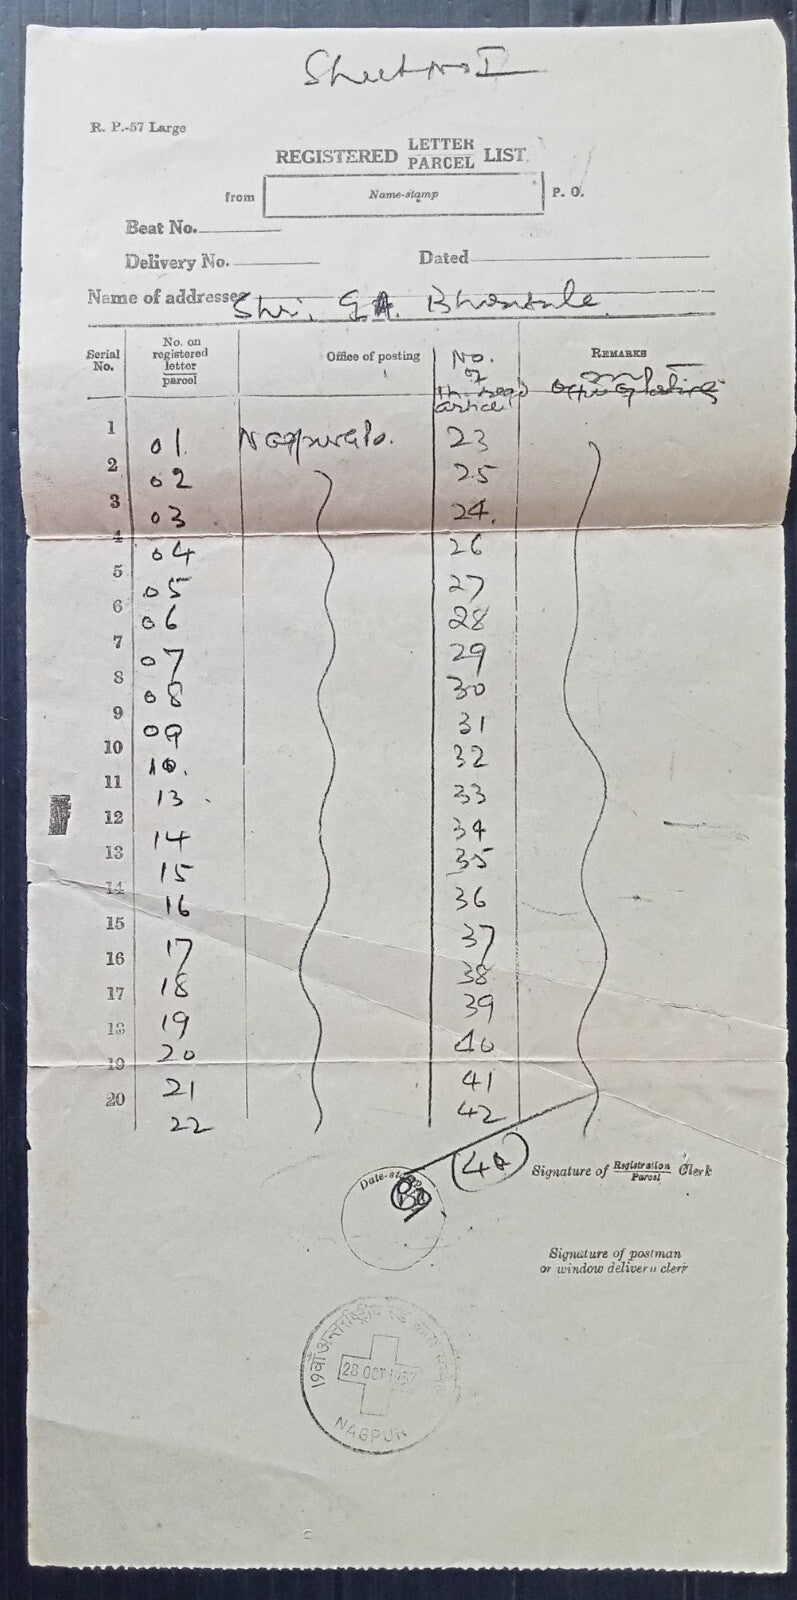 Sheet No I
R. P.-57 Large
REGISTERED LETTER/PARCEL LIST.
from Name-stamp P. O.
Beat No.
Delivery No. Dated
Name of addressee Shri. G.
Serial No. No. on registered letter/parcel Office of posting No. of article REMARKS
1 01. 23
2 02 25
3 03 24.
4 04 26
5 05 27
6 06 28
7 07 29
8 08 30
9 09 31
10 10. 32
11 13 33
12 14 34
13 15 35
14 16 36
15 17 37
16 18 38
17 19 39
18 20 40
19 21 41
20 22 42
Signature of Registration/Parcel Clerk
Date-stamp
Signature of postman
or window delivery clerk
19वाँ अन्तर्राष्ट्रीय रेड क्रास
28 OCT 1957
NAGPUR